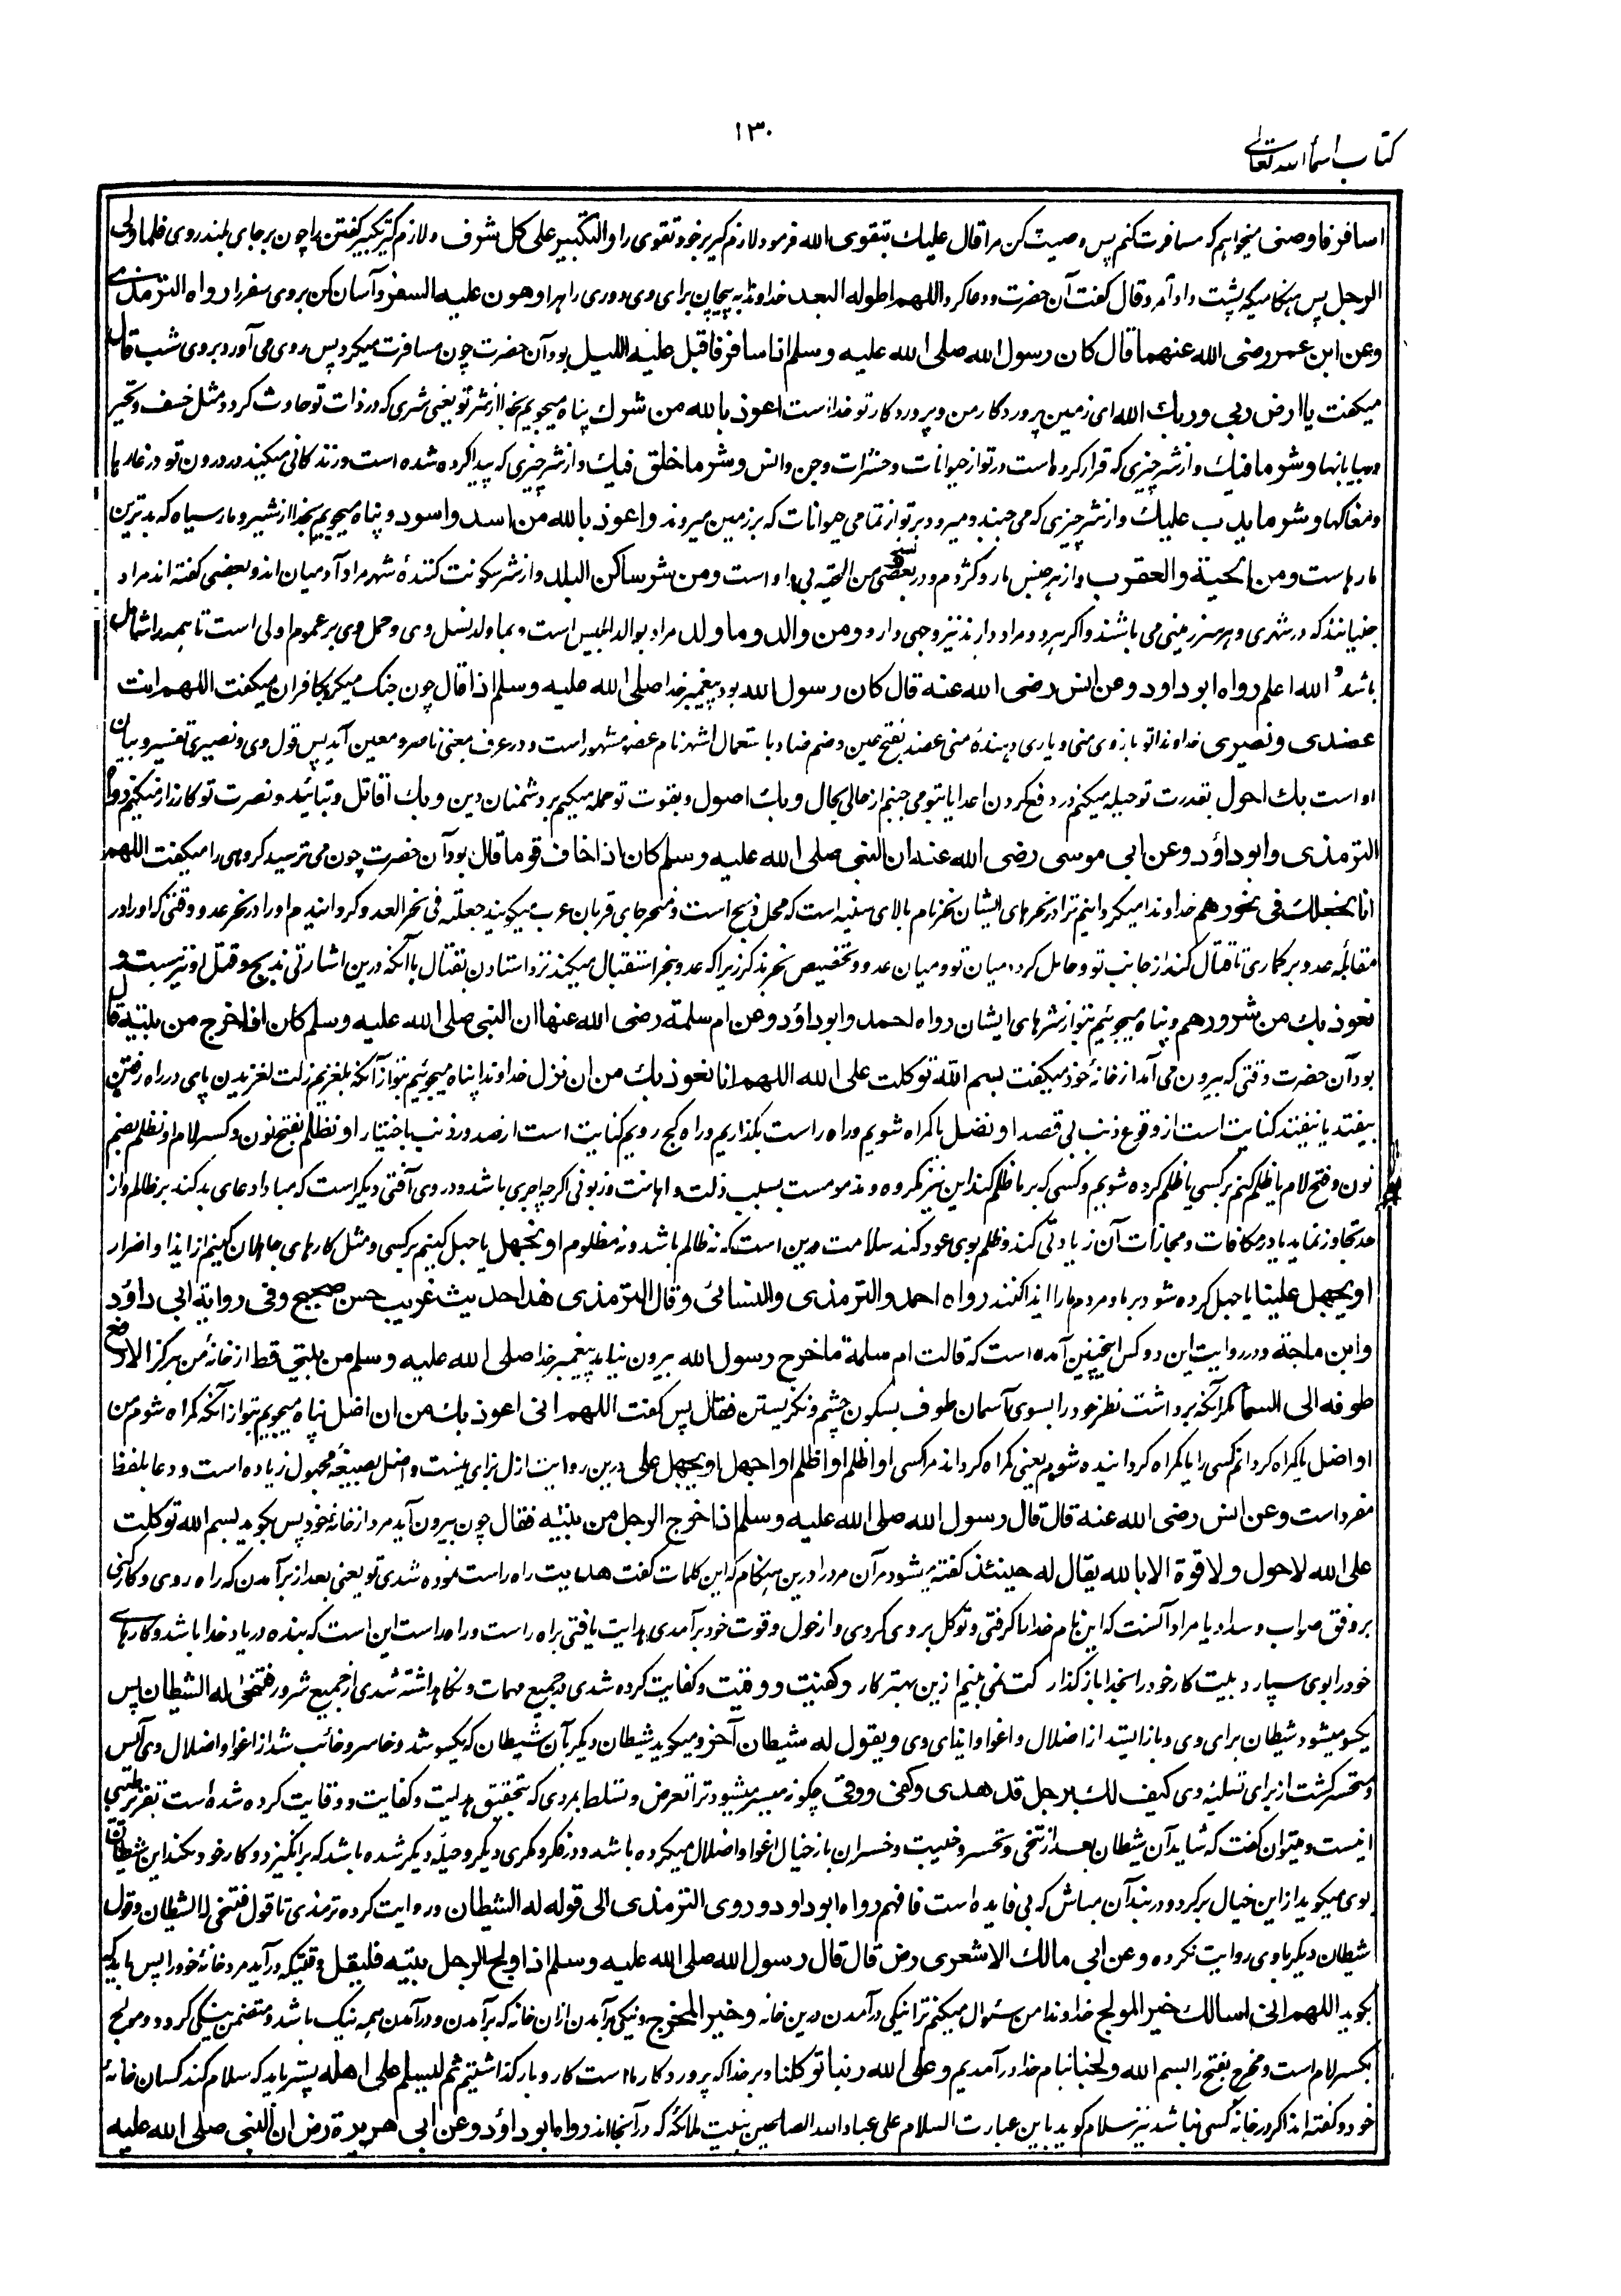 ۱۳۰
کتاب اسماء الله تعالی
اسافر فاوصنی میخواهم که مسافرت کنم پس وصیت کن مرا قال علیك بتقوی الله فرمود لازم گیر بر خود تقوی را والتکبیر علی کل شرف و لازم گیر تکبیر گفتن را چون بر جای بلند روی فلما ولی
الرجل پس هنگامیکه پشت داد آمرد قال گفت آن حضرت و دعا کرد اللهم اطوله البعد خداوندا به پیچان برای وی دوری راه را و هون علیه السفر و آسان کن بر وی سفر را رواه الترمذی
وعن ابن عمر رضی الله عنهما قال کان رسول الله صلی الله علیه وسلم اذا سافر فاقبل علیه اللیل بود آن حضرت چون مسافرت میکرد پس روی می آورد بر وی شب قال
میگفت یا ارض ربی وربك الله ای زمین پروردگار من و پروردگار تو خداست اعوذ بالله من شرك پناه میجویم بخدا از شر تو یعنی شری که در ذات تو حادث گردد مثل خسف و تحیر
در بیابانها وشر ما فیك و از شر چیزی که قرار کرده است در تو از حیوانات و حشرات و جن و انس وشر ما خلق فیك و از شر چیزی که پیدا کرده شده است و زندگانی میکنند در درون تو در غارها
و مغاکها وشر ما یدب علیك و از شر چیزی که می جنبد و میرود بر تو از تمامی حیوانات که بر زمین میروند واعوذ بالله من اسد واسود و پناه میجویم بخدا از شیر و مار سیاه که بدترین
مارهاست ومن الحیة والعقرب و از هر جنس مار و کژدم و در بعضی نسخ من الحیة بی واو است ومن شر ساکن البلد و از شر سکونت کنندهٔ شهر مراد آدمیان اند و بعضی گفته اند مراد
جنیانند که در شهری و هر سرزمینی می باشند و اگر هر دو مراد دارند نیز وجهی دارد ومن والد وما ولد مراد بوالد ابلیس است و بما ولد نسل وی و حمل وی بر عموم اولی است تا همه را شامل
باشد والله اعلم رواه ابو داود وعن انس رضی الله عنه قال کان رسول الله بود پیغمبر خدا صلی الله علیه وسلم اذا غزا قال چون جنگ میکرد با کافران میگفت اللهم انت
عضدی ونصیری خداوندا تو بازوی منی و یاری دهندهٔ منی عضد بفتح عین و ضم ضاد باستعمال اشهر نام عضو مشهور است و در عرف بمعنی ناصر و معین آید پس قول وی ونصیری تفسیر و بیان
او است بك احول بقدرت تو حیله میکنم در دفع کردن اعدا یا بتو می جنبم از حالی بحالی وبك اصول و بقوت تو حمله میکنم بر دشمنان دین وبك اقاتل و بتائید و نصرت تو کارزار میکنم رواه
الترمذی وابو داؤد وعن ابی موسی رضی الله عنه ان النبی صلی الله علیه وسلم کان اذا خاف قوما قال بود آن حضرت چون می ترسید گروهی را میگفت اللهم
انا نجعلك فی نحورهم خداوندا میگردانیم ترا در نحرهای ایشان نحر نام بالای سینه است که محل ذبح است و منحر جای قربان عرب میگویند جعلته فی نحر العدو گردانیدم او را در نحر عدو وقتی که او را در
مقابله عدو برگماری تا قتال کند از جانب تو و حایل گردد میان تو و میان عدو و تخصیص نحر بذکر زیرا که عدو بنحر استقبال میکند نزد استادن بقتال با آنکه درین اشارتی بذبح و قتل او نیز هست و
نعوذ بك من شرورهم و پناه میجوئیم بتو از شرهای ایشان رواه احمد وابو داؤد وعن ام سلمة رضی الله عنها ان النبی صلی الله علیه وسلم کان اذا خرج من بیته قال
بود آن حضرت وقتی که بیرون می آمد از خانهٔ خود میگفت بسم الله توکلت علی الله اللهم انا نعوذ بك من ان نزل خداوندا پناه میجوئیم بتو از آنکه بلغزیم زلت لغزیدن پای در راه رفتن
بیفتد یا نیفتد کنایت است از وقوع ذنب بی قصد او نضل یا گمراه شویم و راه راست بگذاریم و راه کج رویم کنایت است از صدور ذنب باختیار او نظلم بفتح نون و کسر لام او نظلم بضم
نون و فتح لام یا ظلم کنیم بر کسی یا ظلم کرده شویم و کسی که بر ما ظلم کند این نیز مکروه و مذموم ست بسبب ذلت و اهانت و زبونی اگر چه اجری باشد و در وی آفتی دیگر است که مبادا دعای بد کند بر ظالم و از
حد تجاوز نماید یا در مکافات و مجازات آن زیادتی کند و ظلم بوی عود کند سلامت درین است که نه ظالم باشد و نه مظلوم او نجهل یا جهل کنیم بر کسی و مثل کارهای جاهلان کنیم از ایذا و اضرار
او یجهل علینا یا جهل کرده شود بر ما و مردم ما را ایذا کنند رواه احمد والترمذی والنسائی وقال الترمذی هذا حدیث غریب حسن صحیح وفی روایة ابی داؤد
وابن ماجة و در روایت این دو کس اینچنین آمده است که قالت ام سلمة ما خرج رسول الله بیرون نیامد پیغمبر خدا صلی الله علیه وسلم من بیتی قط از خانهٔ من هرگز الا رفع
طرفه الی السماء مگر آنکه برداشت نظر خود را بسوی آسمان طرف بسکون چشم و نگریستن فقال پس گفت اللهم انی اعوذ بك من ان اضل پناه میجویم بتو از آنکه گمراه شوم من
او اضل یا گمراه گردانم کسی را یا گمراه گردانیده شوم یعنی گمراه گرداند مرا کسی او اظلم او اظلم او اجهل او یجهل علی درین روایت ازل نزای نیست و اضل بصیغهٔ مجهول زیاده است و دعا بلفظ
مفرد است وعن انس رضی الله عنه قال قال رسول الله صلی الله علیه وسلم اذا خرج الرجل من بیته فقال چون بیرون آید مرد از خانهٔ خود پس بگوید بسم الله توکلت
علی الله لا حول ولا قوة الا بالله یقال له حینئذ گفته میشود مر آن مرد را درین هنگام که این کلمات گفت هدیت راه راست نموده شدی تو یعنی بعد از برآمدن که راه روی و کار کنی
بر وفق صواب و سداد یا مراد آنست که این نام خدا را گرفتی و توکل بر وی کردی و از حول و قوت خود برآمدی هدایت یافتی براه راست و راه راست این است که بنده در یاد خدا باشد و کارهای
خود را بوی سپارد بیت کار خود را بخدا باز گذار کت نمی بینم ازین بهتر کار وکفیت ووقیت و کفایت کرده شدی در جمیع مهمات و نگاهداشته شدی از جمیع شرور فتنحی له الشیطان پس
یکسو میشود شیطان برای وی و باز ایستد از اضلال و اغوا و ایذای وی ویقول له شیطان آخر و میگوید شیطان دیگر بآن شیطان که یکسو شد و خاسر و خائب شد از اغوا و اضلال وی آیس
و متحسر گشت از برای تسلیهٔ وی کیف لك برجل قد هدی وکفی ووقی چگونه میسر میشود ترا تعرض و تسلط بمردی که بتحقیق هدایت و کفایت و وقایت کرده شده است تقریر
اینست و میتوان گفت که شاید آن شیطان بعد از تنحی و تحسر و خیبت و خسران باز خیال اغوا و اضلال میکرده باشد و در فکر و مکری دیگر و حیلهٔ دیگر شده باشد که برانگیزد و کار خود بکند این شیطان
بوی میگوید از این خیال برگرد و در بند آن مباش که بی فایده است فافهم رواه ابو داود وروی الترمذی الی قوله له الشیطان و روایت کرده ترمذی تا قول فتنحی له الشیطان و قول
شیطان دیگر با وی روایت نکرده وعن ابی مالك الاشعری رض قال قال رسول الله صلی الله علیه وسلم اذا ولج الرجل بیته فلیقل وقتیکه درآید مرد خانهٔ خود را پس باید که
بگوید اللهم انی اسألك خیر المولج خداوندا من سئوال میکنم ترا نیکی درآمدن درین خانه وخیر المخرج و نیکی برآمدن ازان خانه که برآمدن و درآمدن همه نیک باشد و متضمن نیکی گردد و مولج
بکسر لام است و مخرج بفتح را بسم الله ولجنا بنام خدا درآمدیم وعلی الله ربنا توکلنا و بر خدا که پروردگار ما است کار و بار گذاشتیم ثم لیسلم علی اهله پستر باید که سلام کند کسان خانهٔ
خود و گفته اند اگر در خانه کسی نباشد نیز سلام گوید باین عبارت السلام علی عباد الله الصالحین بنیت ملائکه که در آنجا اند رواه ابو داؤد وعن ابی هریرة رض ان النبی صلی الله علیه